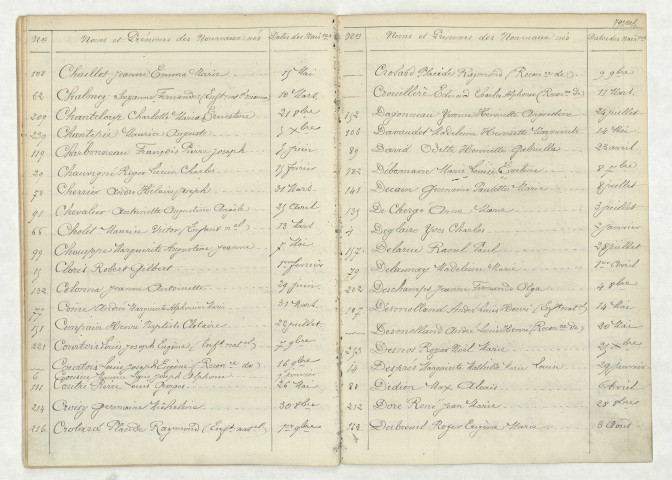 Nos Noms et Prénoms des Nouveaux nés Dates des Naisces
108 Chaillet Jeanne Emma Marie 15 Mai
62 Chalmey Suzanne Fernande 10 Mars
209 Chanteloup Charlotte Marie Ernestine 21 8bre
229 Chantepie Maurice Auguste 3 xbre
119 Charbonneau François Pierre Joseph 1 Juin
29 Chauvigné Roger Lucien Charles 15 février
78 Cherrier André Hilaire Joseph 31 Mars
91 Chevalier Antoinette Augustine Angèle 25 Avril
66 Cholet Maurice Victor (Enfant nel) 13 Mars
99 Chouppe Marguerite Augustine Jeanne 7 Mai
15 Clorès Robert Gilbert 1er février
132 Colonna Jeanne Antoinette 29 Juin
77 Côme André Marguerite Alphonsine Marie 31 Mars
151 Compain Henri Baptiste Hilaire 22 juillet
221 Courtois Louis Joseph Eugène (Enft natel) 7 9bre
Courtois Louis Joseph Eugène (Reconce de) 16 9bre
6 Cousin Louis Joseph Alphonse 9 janvier
111 Coutre Pierre Louis 26 Mai
214 Croizy Germaine Micheline 30 8bre
216 Crolard Placide Raymond (Enft natel) 1er 9bre
Nos Noms et Prénoms des Nouveaux nés Dates des Naisces
Crolard Placide Raymond (Reconce de) 9 9bre
Crouillère Edmond Charles Alphonse (Reconce de) 11 Mars
152 Dagonneau Yvonne Henriette Augustine 24 juillet
106 Davaudet Madeleine Henriette Marguerite 14 Mai
89 David Odette Henriette Gabrielle 23 avril
182 Débarnaire Marie Louise Eveline 8 7bre
141 Decam Germaine Paulette Marie 8 juillet
139 De Chergé Anne Marie 3 juillet
4 Deglaire Yves Charles 7 janvier
157 Delarue Raoul Paul 28 juillet
79 Delaunay Madeleine Marie 1er Avril
202 Deschamps Jeanne Fernande Olga 4 8bre
107 Desmolland André Louis Henri (Enft natel) 14 Mai
Desmolland André Louis Henri (Reconce de) 20 Mai
243 Desnos Roger Noël Marie 25 xbre
14 Després Marguerite Mathilde Marie Laure 29 janvier
81 Didion Max Alexis 6 Avril
212 Doré René Jean Marie 28 8bre
169 Dubreuil Roger Eugène Marie 8 Août